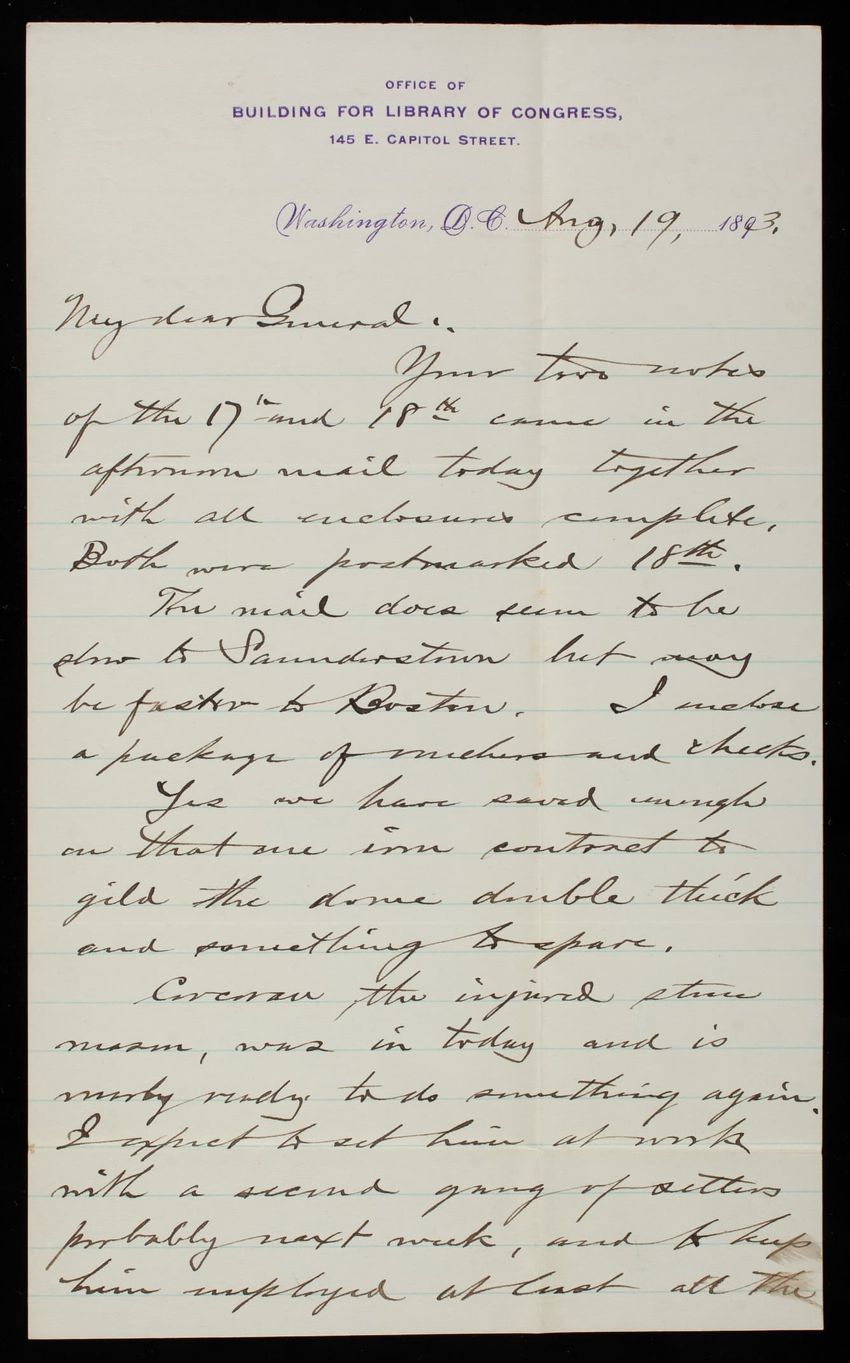 OFFICE OF
BUILDING FOR LIBRARY OF CONGRESS,
145 E. CAPITOL STREET.
Washington, D.C. Aug, 19, 1893.
My dear General:
Your two notes
of the 17th and 18th came in the
afternoon mail today together
with all enclosures complete,
Both were postmarked 18th.
The mail does seem to be
slow to Saunderstown but may
be faster to Boston. I inclose
a package of vouchers and checks.
Yes we have saved enough
on that one iron contract to
gild the dome double thick
and something to spare.
Corcoran, the injured stone
mason, was in today and is
nearly ready to do something again.
I expect to set him at work
with a second gang of setters
probably next week, and to keep
him employed at least all the